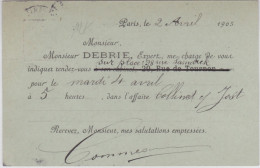 Paris, le 2 Avril 1905
Monsieur,
Monsieur DEBRIE, Expert, me charge de vous
indiquer rendez-vous sur place 20, Rue de Tournon
pour le mardi 4 avril
à 5 heures dans l'affaire Jost
Recevez, Monsieur, mes salutations empressées.